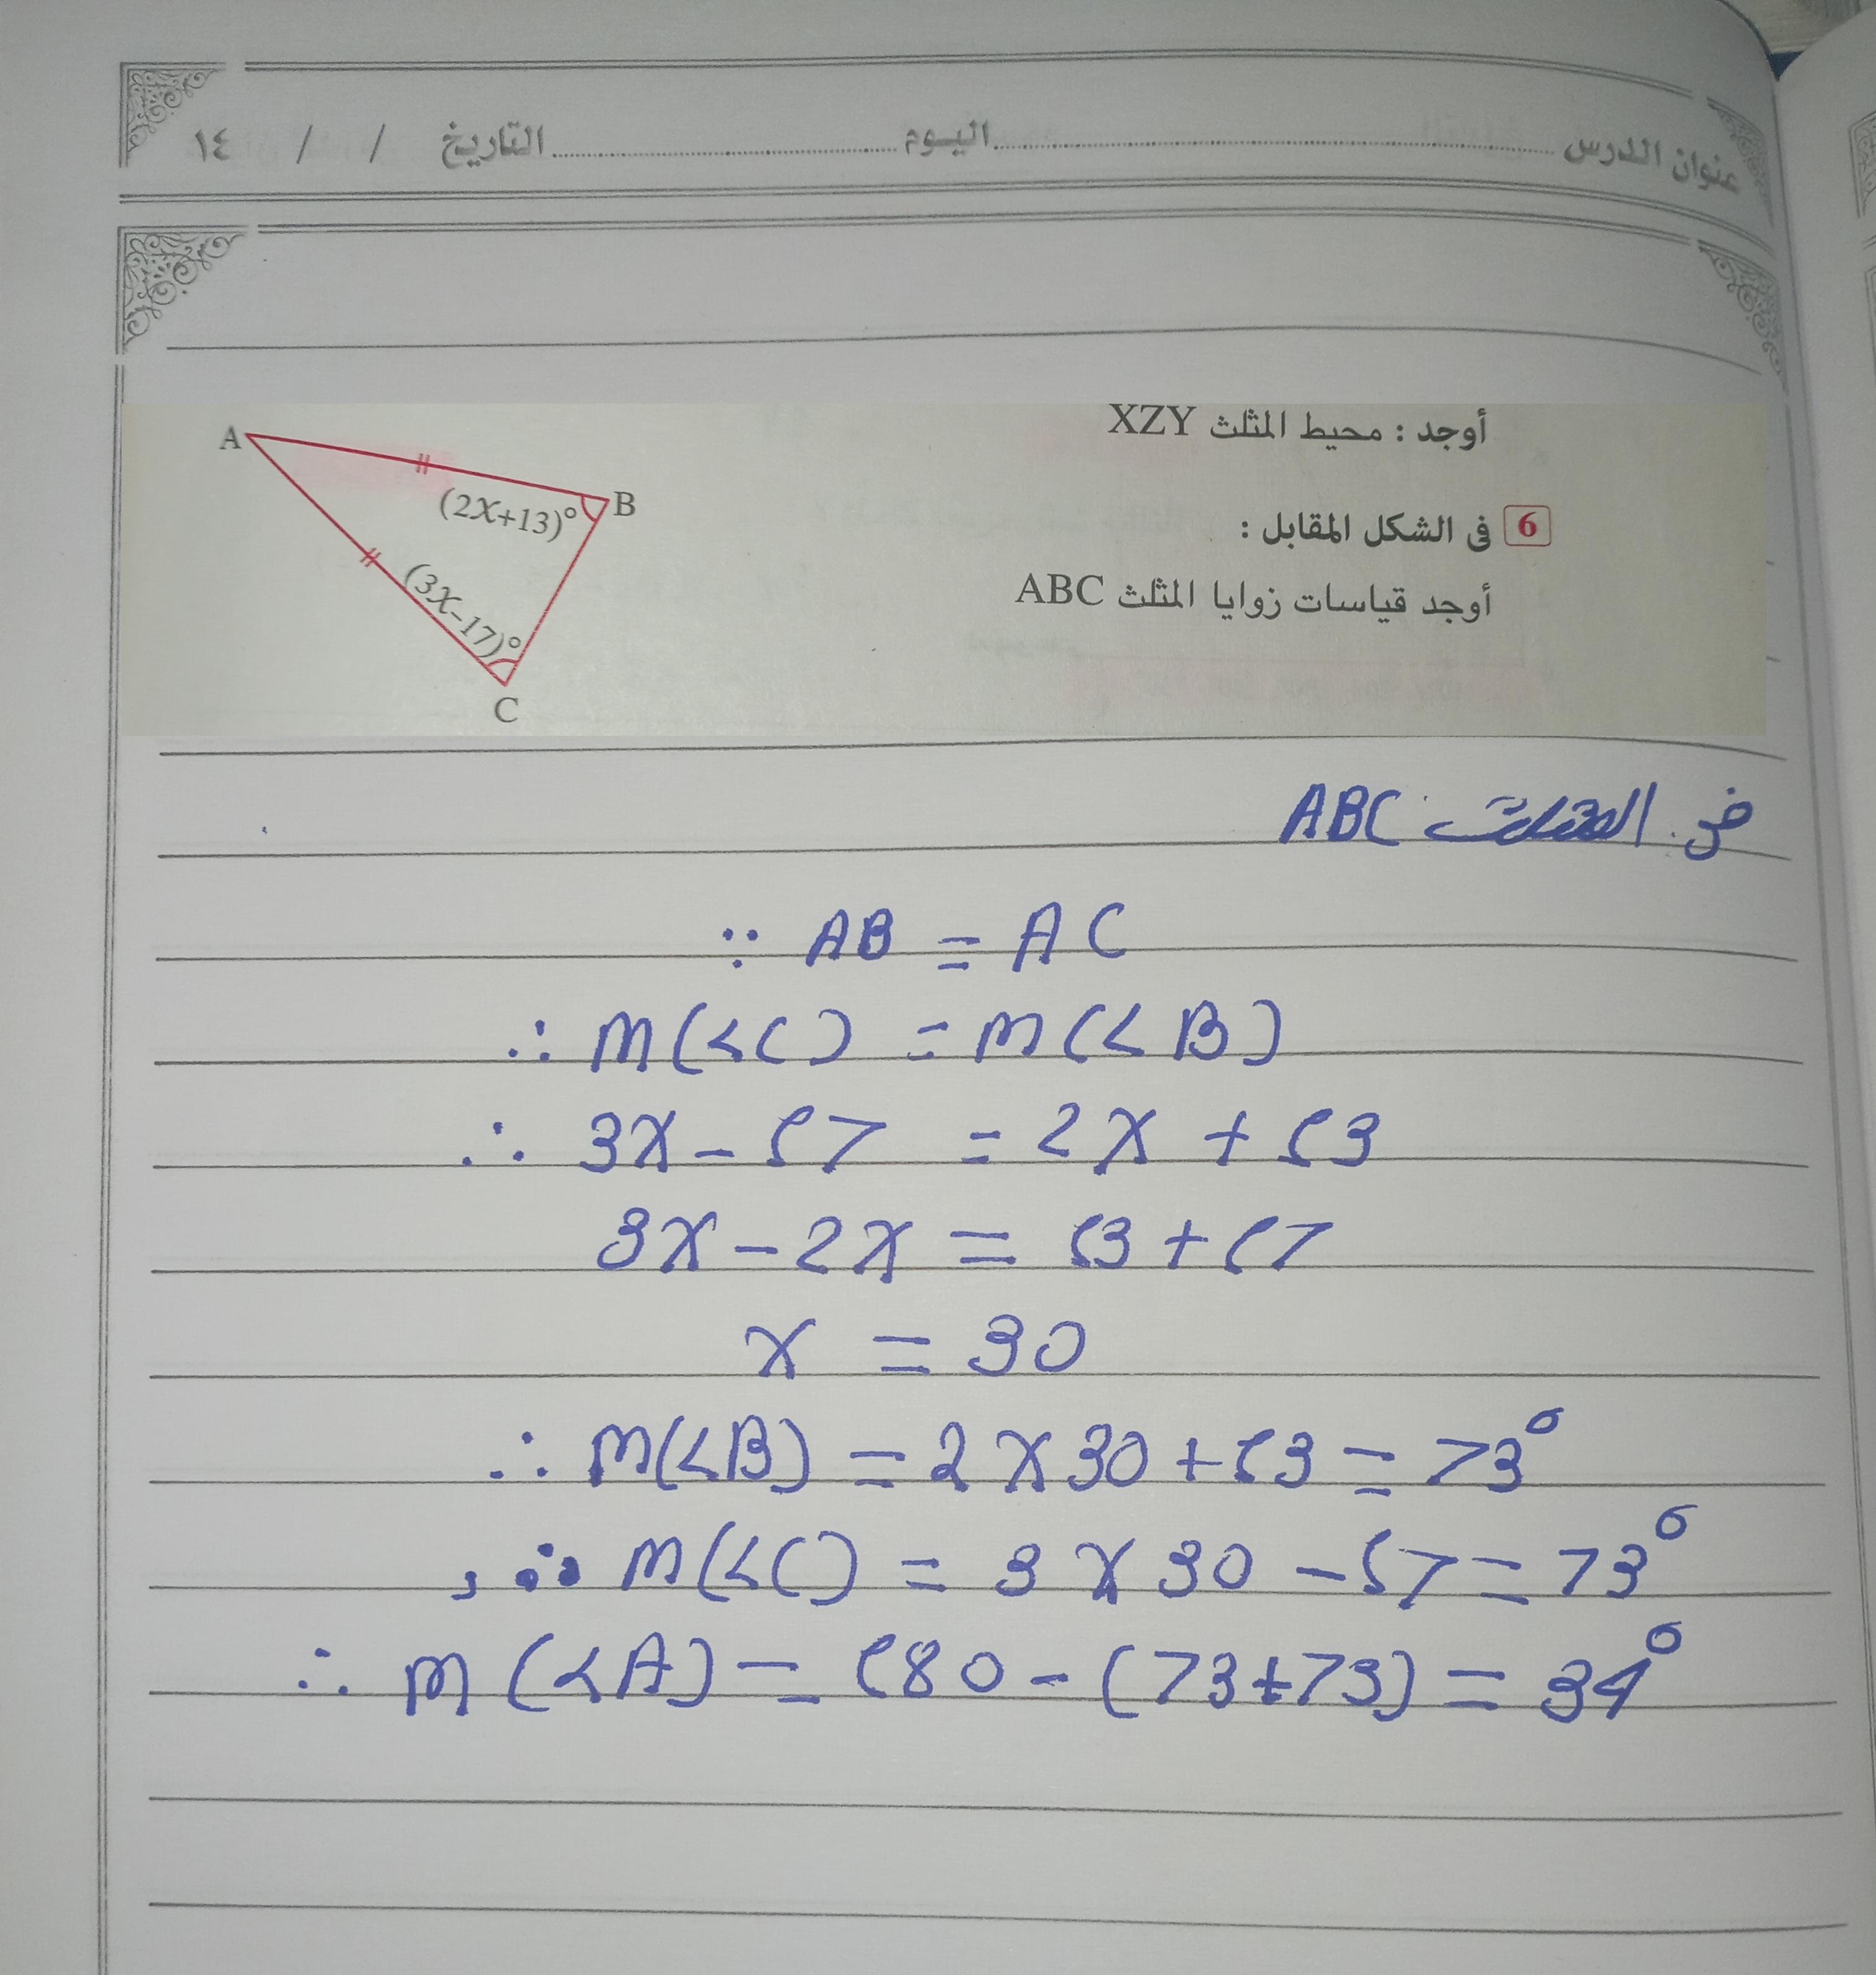 عنوان الدرس اليوم التاريخ / / ١٤
أوجد : محيط المثلث XZY
6 فى الشكل المقابل :
أوجد قياسات زوايا المثلث ABC
A
B
(2X+13)°
(3X-17)°
C
في المثلث ABC
∵ AB = AC
∴ m(<C) = m(<B)
∴ 3X - 17 = 2X + 13
3X - 2X = 13 + 17
X = 30
∴ m(<B) = 2 X 30 + 13 = 73°
, ∴ m(<C) = 3 X 30 - 17 = 73°
∴ m(<A) = 180 - (73+73) = 34°